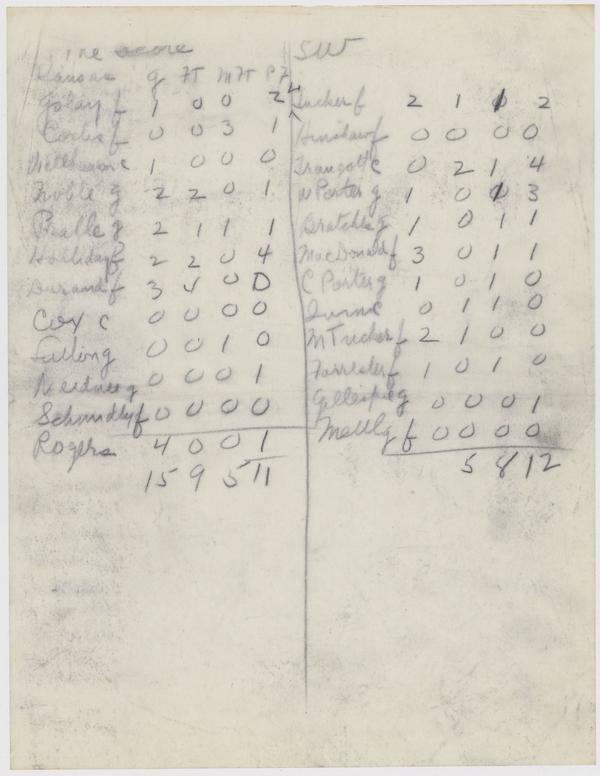 The score
Kansas g FT MFT PF
Golay f 1 0 0 2
Corlis f 0 0 3 1
c 1 0 0 0
Noble g 2 2 0 1
Pralle g 2 1 1 1
Holliday f 2 2 0 4
Durand f 3 4 0 0
Cox c 0 0 0 0
g 0 0 1 0
g 0 0 0 1
f 0 0 0 0
Rogers 4 0 0 1
15 9 5 11
SW
Tucker f 2 1 1 2
Hinshaw f 0 0 0 0
c 0 2 1 4
W Porter g 1 0 1 3
g 1 0 1 1
MacDonald f 3 0 1 1
C Porter g 1 0 1 0
c 0 1 1 0
M Tucker f 2 1 0 0
Forrester f 1 0 1 0
Gillespie g 0 0 0 1
f 0 0 0 0
5 8 12